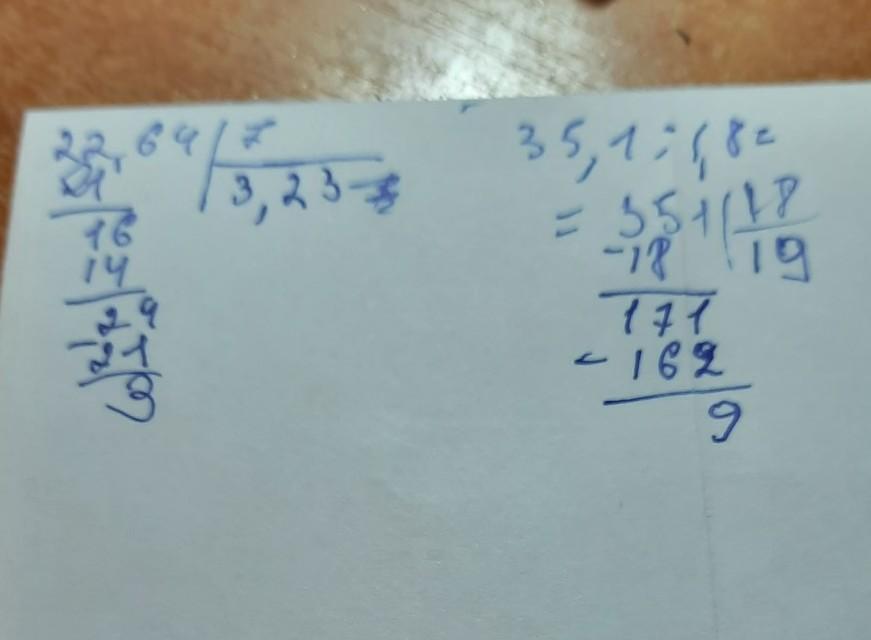 22,64 | 7
21
3,23
16
14
24
- 21
3
35,1 : 1,8 =
= 351 | 18
- 18
19
171
- 162
9